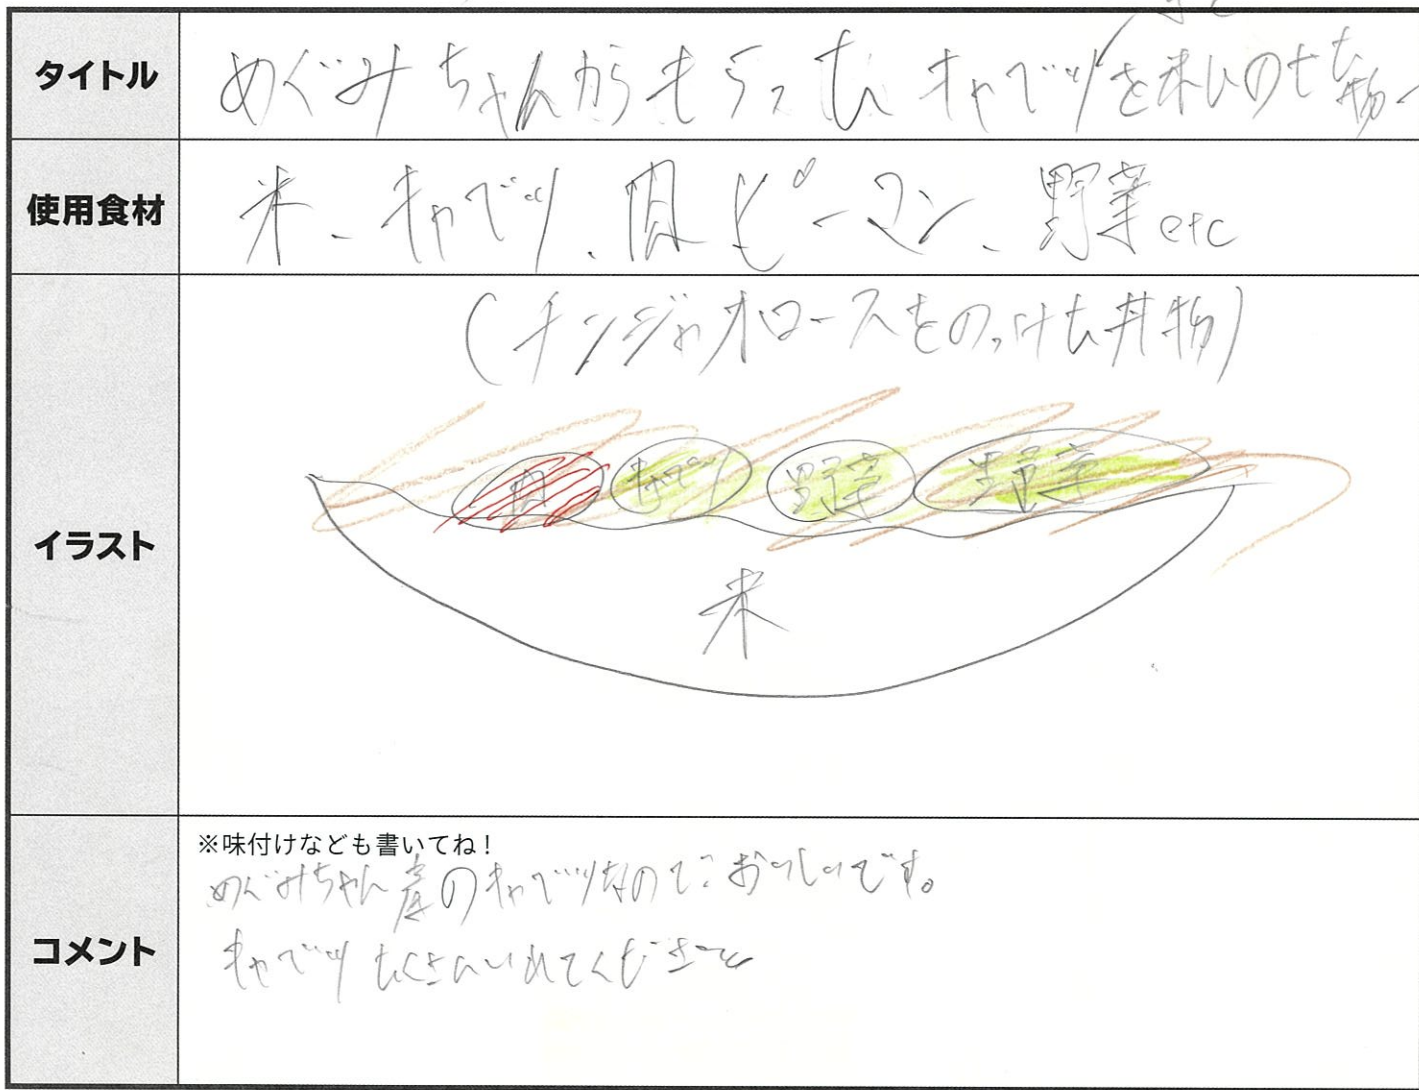 タイトル
めぐみちゃんからもらったキャベツを米にのせた物
使用食材
米、キャベツ、肉、ピーマン、野菜etc
イラスト
(チンジャオロースをのっけた丼物)
肉 キャベツ 野菜 野菜
米
コメント
※味付けなども書いてね!
めぐみちゃん産のキャベツなので、おいしいです。
キャベツたくさんいれてください